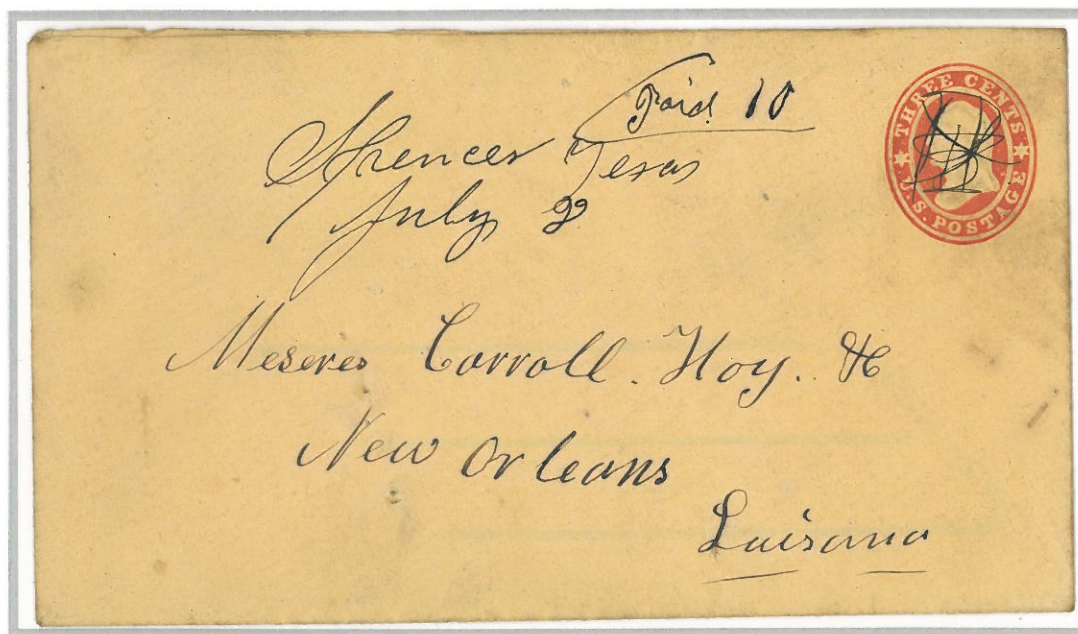 Paid 10
Spencer Texas
July 2
THREE CENTS
U.S. POSTAGE
Messres Carroll. Hoy. &C
New Orleans
Luisana